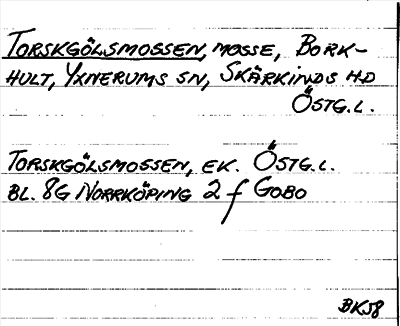 TORSKGÖLSMOSSEN, MOSSE, BORK-
HULT, YXNERUMS SN, SKÄRKINDS HD
ÖSTG.L.
TORSKGÖLSMOSSEN, EK. ÖSTG.L.
BL. 8G NORRKÖPING 2 f GOBO
BK58